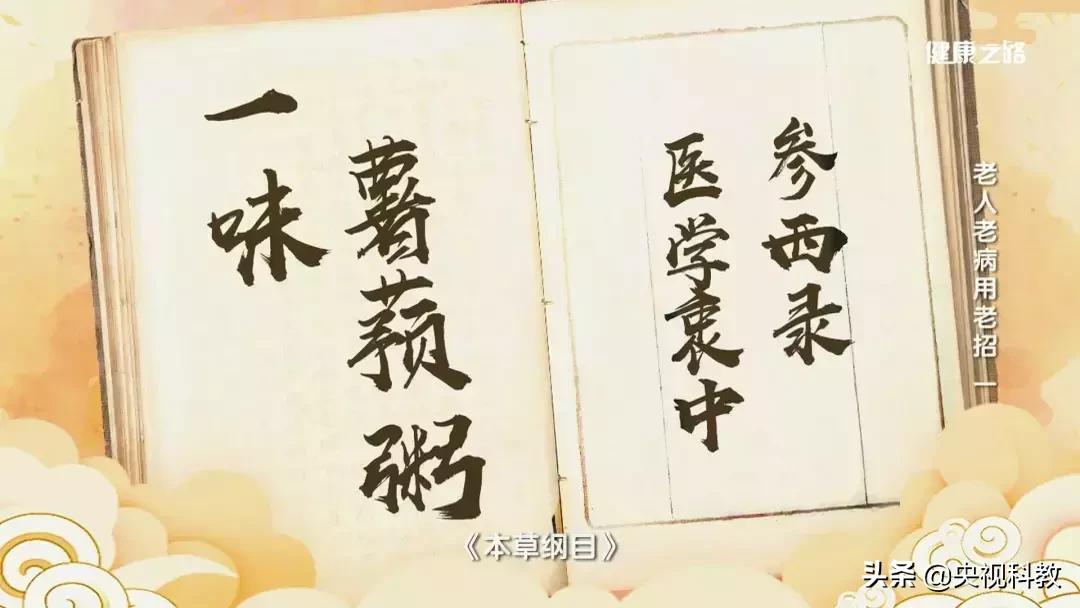 健康之路
老人老病用老招 一
一味
薯蓣粥
医学衷中
参西录
《本草纲目》
头条 @央视科教